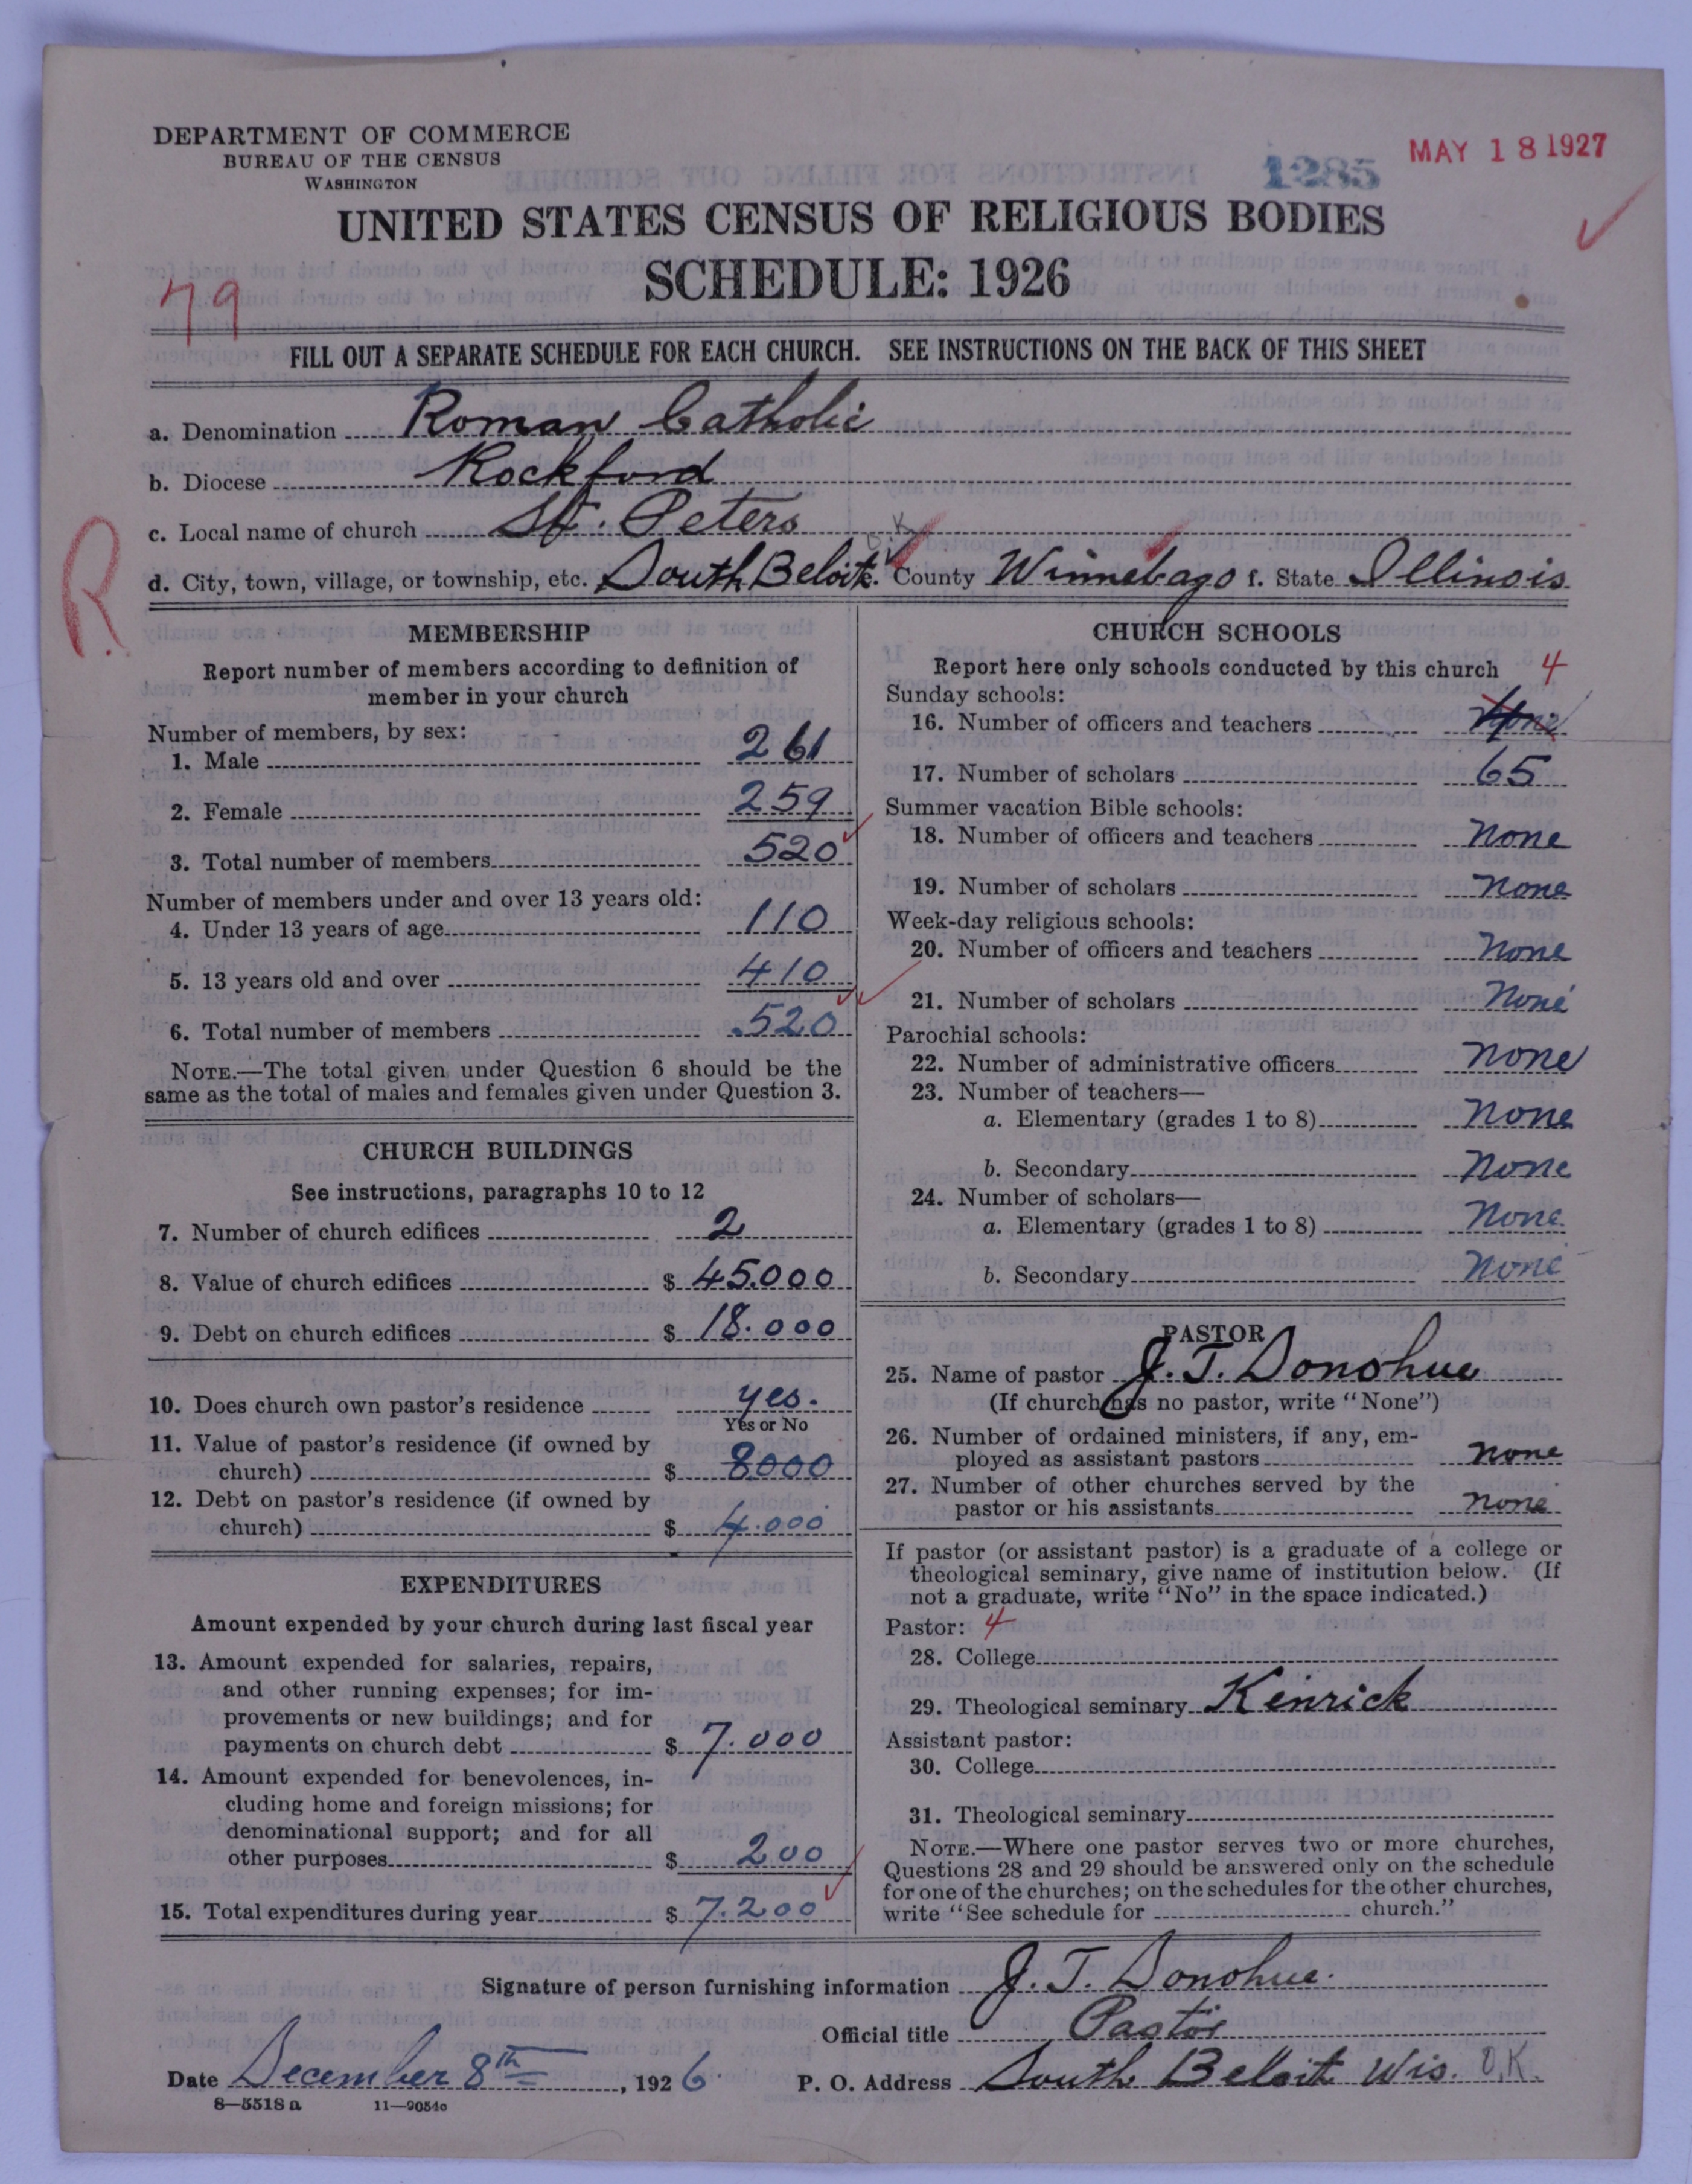 DEPARTMENT OF COMMERCE
BUREAU OF THE CENSUS
WASHINGTON
1285
MAY 18 1927
UNITED STATES CENSUS OF RELIGIOUS BODIES
SCHEDULE: 1926
79
FILL OUT A SEPARATE SCHEDULE FOR EACH CHURCH. SEE INSTRUCTIONS ON THE BACK OF THIS SHEET
a. Denomination Roman Catholic
b. Diocese Rockford
c. Local name of church St. Peters
O.K.
d. City, town, village, or township, etc. South Beloit e. County Winnebago f. State Illinois
R.
MEMBERSHIP
Report number of members according to definition of
member in your church
Number of members, by sex:
1. Male 261
2. Female 259
3. Total number of members 520
Number of members under and over 13 years old:
4. Under 13 years of age 110
5. 13 years old and over 410
6. Total number of members 520
NOTE.—The total given under Question 6 should be the
same as the total of males and females given under Question 3.
CHURCH BUILDINGS
See instructions, paragraphs 10 to 12
7. Number of church edifices 2
8. Value of church edifices $ 45.000
9. Debt on church edifices $ 18.000
10. Does church own pastor's residence yes.
Yes or No
11. Value of pastor's residence (if owned by
church) $ 8000
12. Debt on pastor's residence (if owned by
church) $ 4.000
EXPENDITURES
Amount expended by your church during last fiscal year
13. Amount expended for salaries, repairs,
and other running expenses; for im-
provements or new buildings; and for
payments on church debt $ 7.000
14. Amount expended for benevolences, in-
cluding home and foreign missions; for
denominational support; and for all
other purposes $ 200
15. Total expenditures during year $ 7.200
CHURCH SCHOOLS
Report here only schools conducted by this church 4
Sunday schools:
16. Number of officers and teachers None
17. Number of scholars 65
Summer vacation Bible schools:
18. Number of officers and teachers None
19. Number of scholars None
Week-day religious schools:
20. Number of officers and teachers None
21. Number of scholars None
Parochial schools:
22. Number of administrative officers None
23. Number of teachers—
a. Elementary (grades 1 to 8) None
b. Secondary None
24. Number of scholars—
a. Elementary (grades 1 to 8) None
b. Secondary None
PASTOR
25. Name of pastor J. T. Donohue
(If church has no pastor, write "None")
26. Number of ordained ministers, if any, em-
ployed as assistant pastors none
27. Number of other churches served by the
pastor or his assistants none
If pastor (or assistant pastor) is a graduate of a college or
theological seminary, give name of institution below. (If
not a graduate, write "No" in the space indicated.)
Pastor: 4
28. College
29. Theological seminary Kenrick
Assistant pastor:
30. College
31. Theological seminary
NOTE.—Where one pastor serves two or more churches,
Questions 28 and 29 should be answered only on the schedule
for one of the churches; on the schedules for the other churches,
write "See schedule for church."
Signature of person furnishing information J. T. Donohue.
Official title Pastor
Date December 8th, 1926. P. O. Address South Beloit Wis. O.K.
8—5518 a 11—9054c